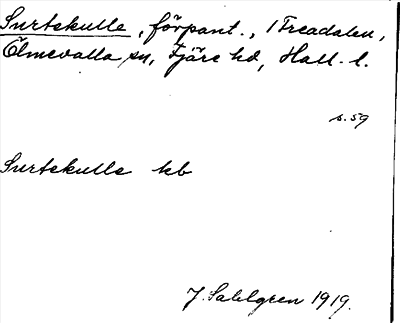 Snrtekulle, förpant., 1 Treadalen,
Ölmevalla sn, Fjäre hd, Hall. l.
s. 59
Snrtekulle kb
J. Sahlgren 1919.